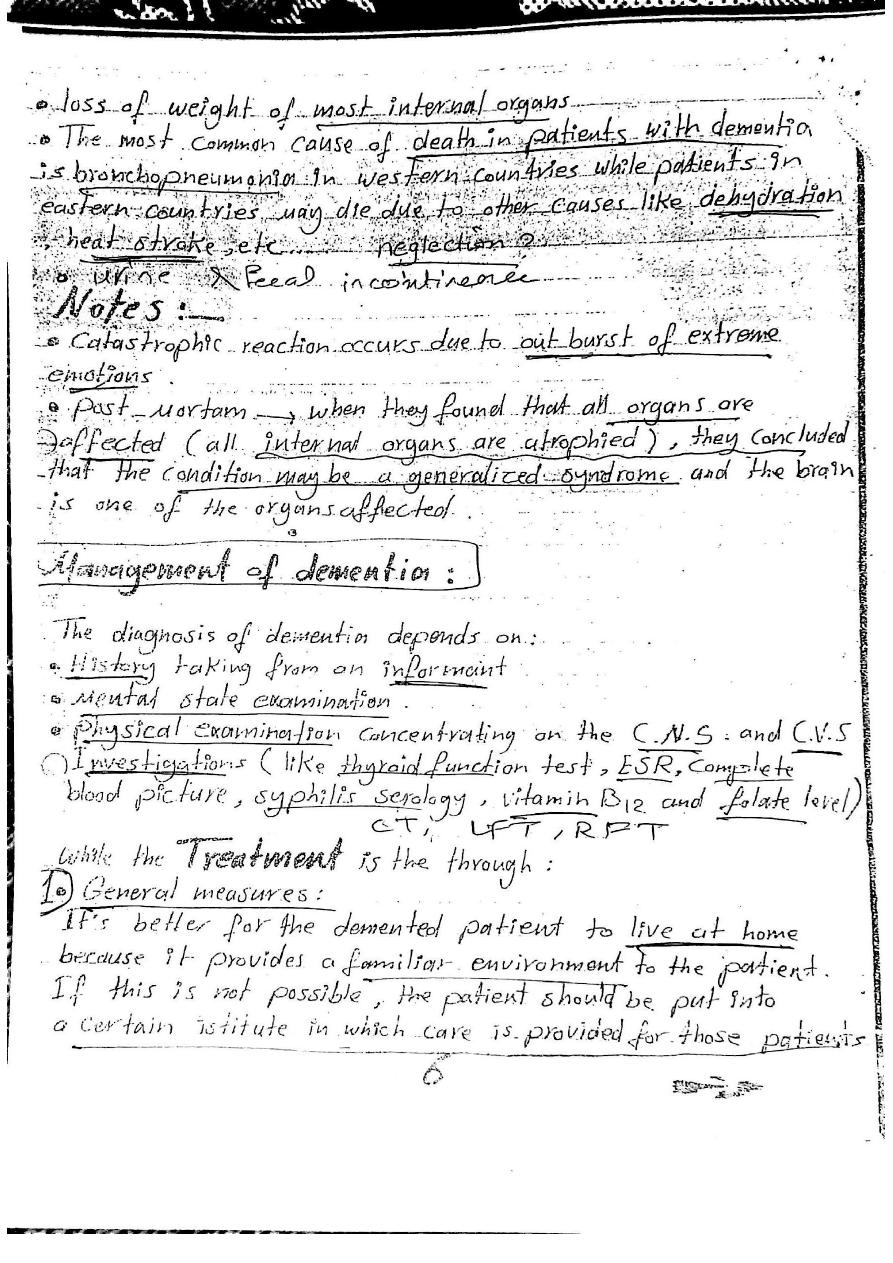 • loss of weight of most internal organs
• The most common cause of death in patients with dementia
is bronchopneumonia in western countries while patients in
eastern countries may die due to other causes like dehydration
, heat stroke, etc...... neglection?
• urine & fecal incontinence
Notes :-
• Catastrophic reaction occurs due to out burst of extreme
emotions.
• Post-mortam → when they found that all organs are
affected (all internal organs are atrophied), they concluded
that the condition may be a generalized syndrome and the brain
is one of the organs affected.
Management of dementia :
The diagnosis of dementia depends on :
• History taking from an informant
• Mental state examination.
• Physical examination concentrating on the C.N.S. and C.V.S
Investigations (like thyroid function test, ESR, Complete
blood picture, syphilis serology, vitamin B12 and folate level)
CT, LFT, RFT
While the Treatment is the through :
1• General measures:
It's better for the demented patient to live at home
because it provides a familiar environment to the patient.
If this is not possible, the patient should be put into
a certain istitute in which care is provided for those patients
6